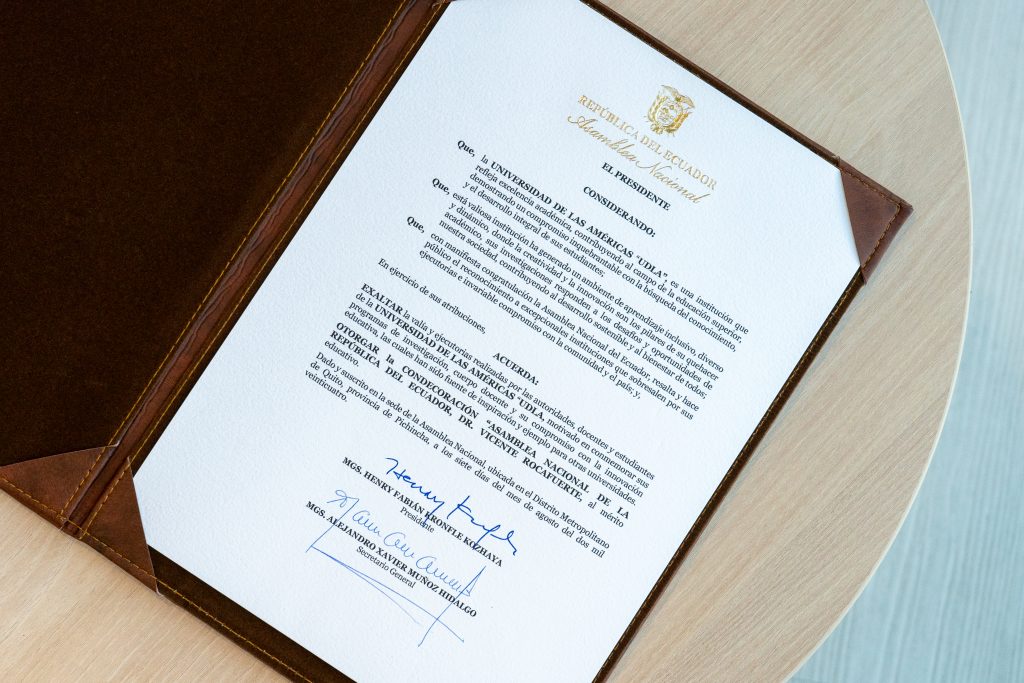 REPÚBLICA DEL ECUADOR
Asamblea Nacional
EL PRESIDENTE
CONSIDERANDO:
Que, la UNIVERSIDAD DE LAS AMÉRICAS "UDLA", es una institución que
refleja excelencia académica, contribuyendo al campo de la educación superior,
demostrando un compromiso inquebrantable con la búsqueda del conocimiento,
y el desarrollo integral de sus estudiantes;
Que, está valiosa institución ha generado un ambiente de aprendizaje inclusivo, diverso
y dinámico, donde la creatividad y la innovación son los pilares de su quehacer
académico, sus investigaciones responden a los desafíos y oportunidades de
nuestra sociedad, contribuyendo al desarrollo sostenible y al bienestar de todos;
Que, con manifiesta congratulación la Asamblea Nacional del Ecuador, resalta y hace
público el reconocimiento a excepcionales instituciones que sobresalen por sus
ejecutorias e invariable compromiso con la comunidad, y el país; y,
En ejercicio de sus atribuciones,
ACUERDA:
EXALTAR la valía y ejecutorias realizadas por las autoridades, docentes y estudiantes
de la UNIVERSIDAD DE LAS AMÉRICAS "UDLA, motivado en conmemorar sus
programas de investigación, cuerpo docente y su compromiso con la innovación
educativa, las cuales han sido fuente de inspiración y ejemplo para otras universidades.
OTORGAR la CONDECORACIÓN "ASAMBLEA NACIONAL DE LA
REPÚBLICA DEL ECUADOR, DR. VICENTE ROCAFUERTE, al mérito
educativo.
Dado y suscrito en la sede de la Asamblea Nacional, ubicada en el Distrito Metropolitano
de Quito, provincia de Pichincha, a los siete días del mes de agosto del dos mil
veinticuatro.
Henry Kronfle
MGS. HENRY FABIÁN KRONFLE KOZHAYA
Presidente
MGS. ALEJANDRO XAVIER MUÑOZ HIDALGO
Secretario General